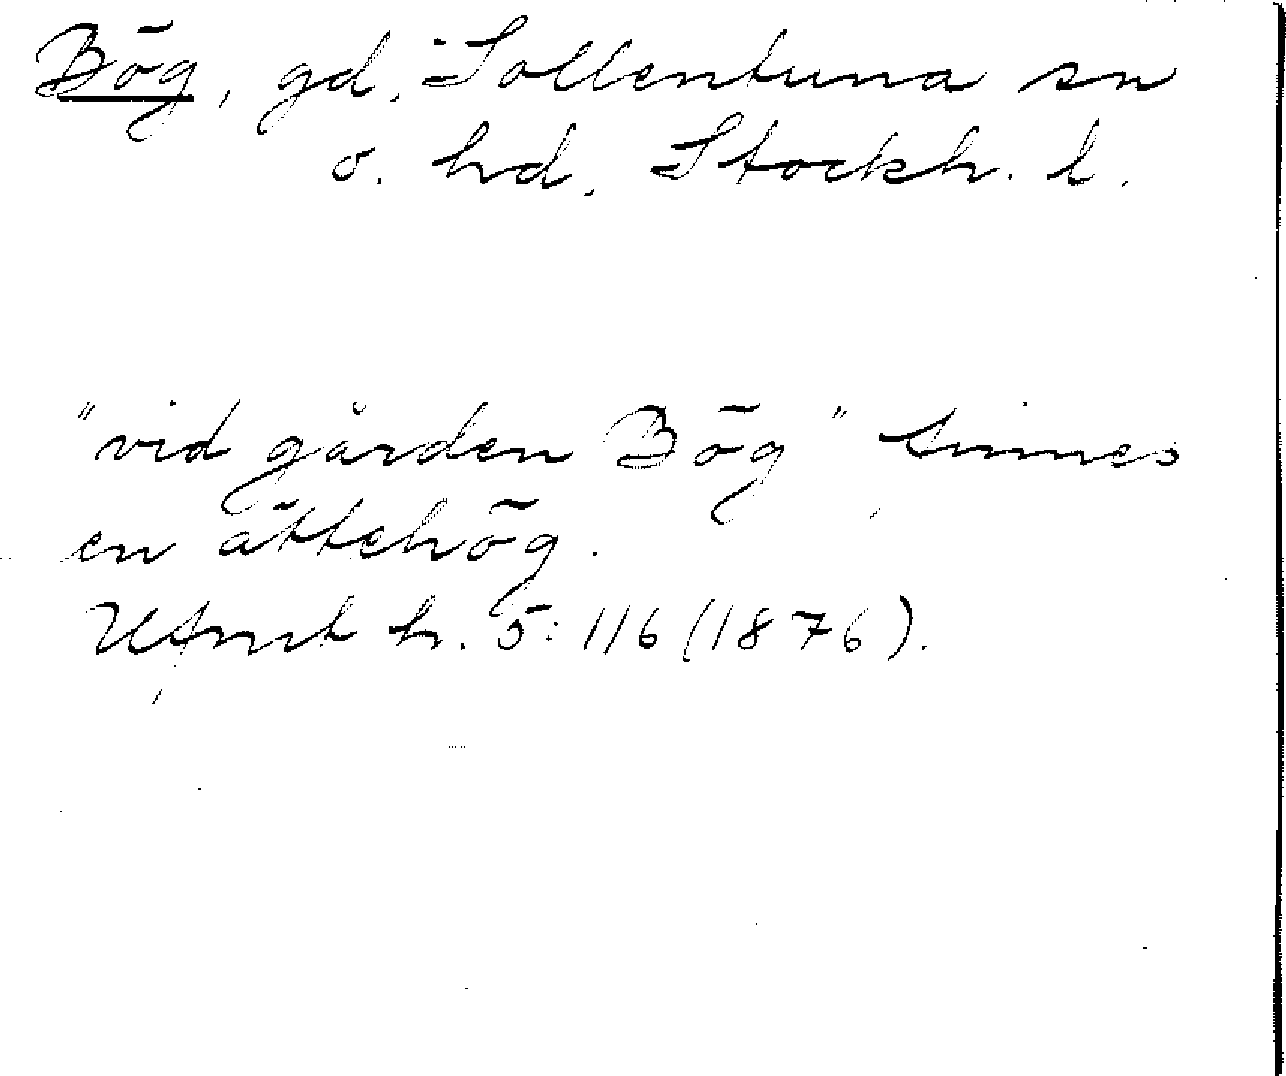 Bög, gd, Sollentuna sn
o. hd. Stockh. l.
"vid gården Bög" finnes
en ättehög.
UFmt h. 5: 116 (1876).